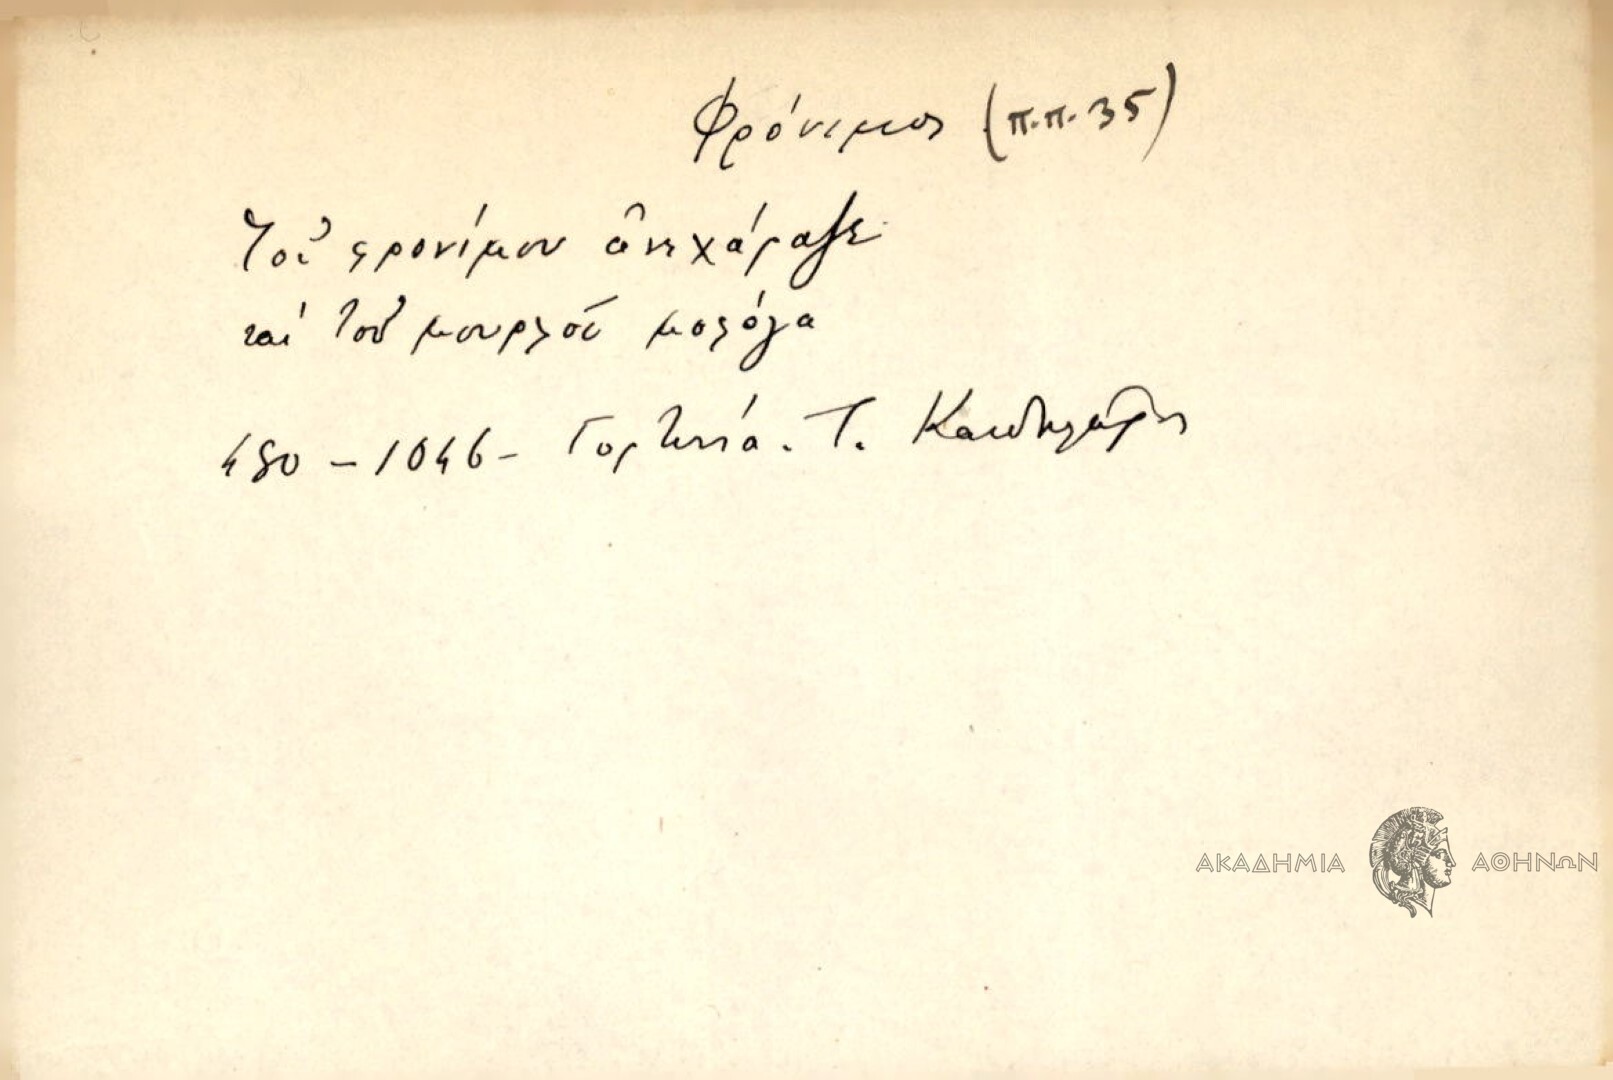 Φρόνιμος (π.π. 35)
Τοῦ φρονίμου ἀνεχάραζε
καὶ τοῦ μουρλοῦ μολόγα
480 - 1046 - Γορτυνία. Τ. Κανδηλώρης
ΑΚΑΔΗΜΙΑ ΑΘΗΝΩΝ